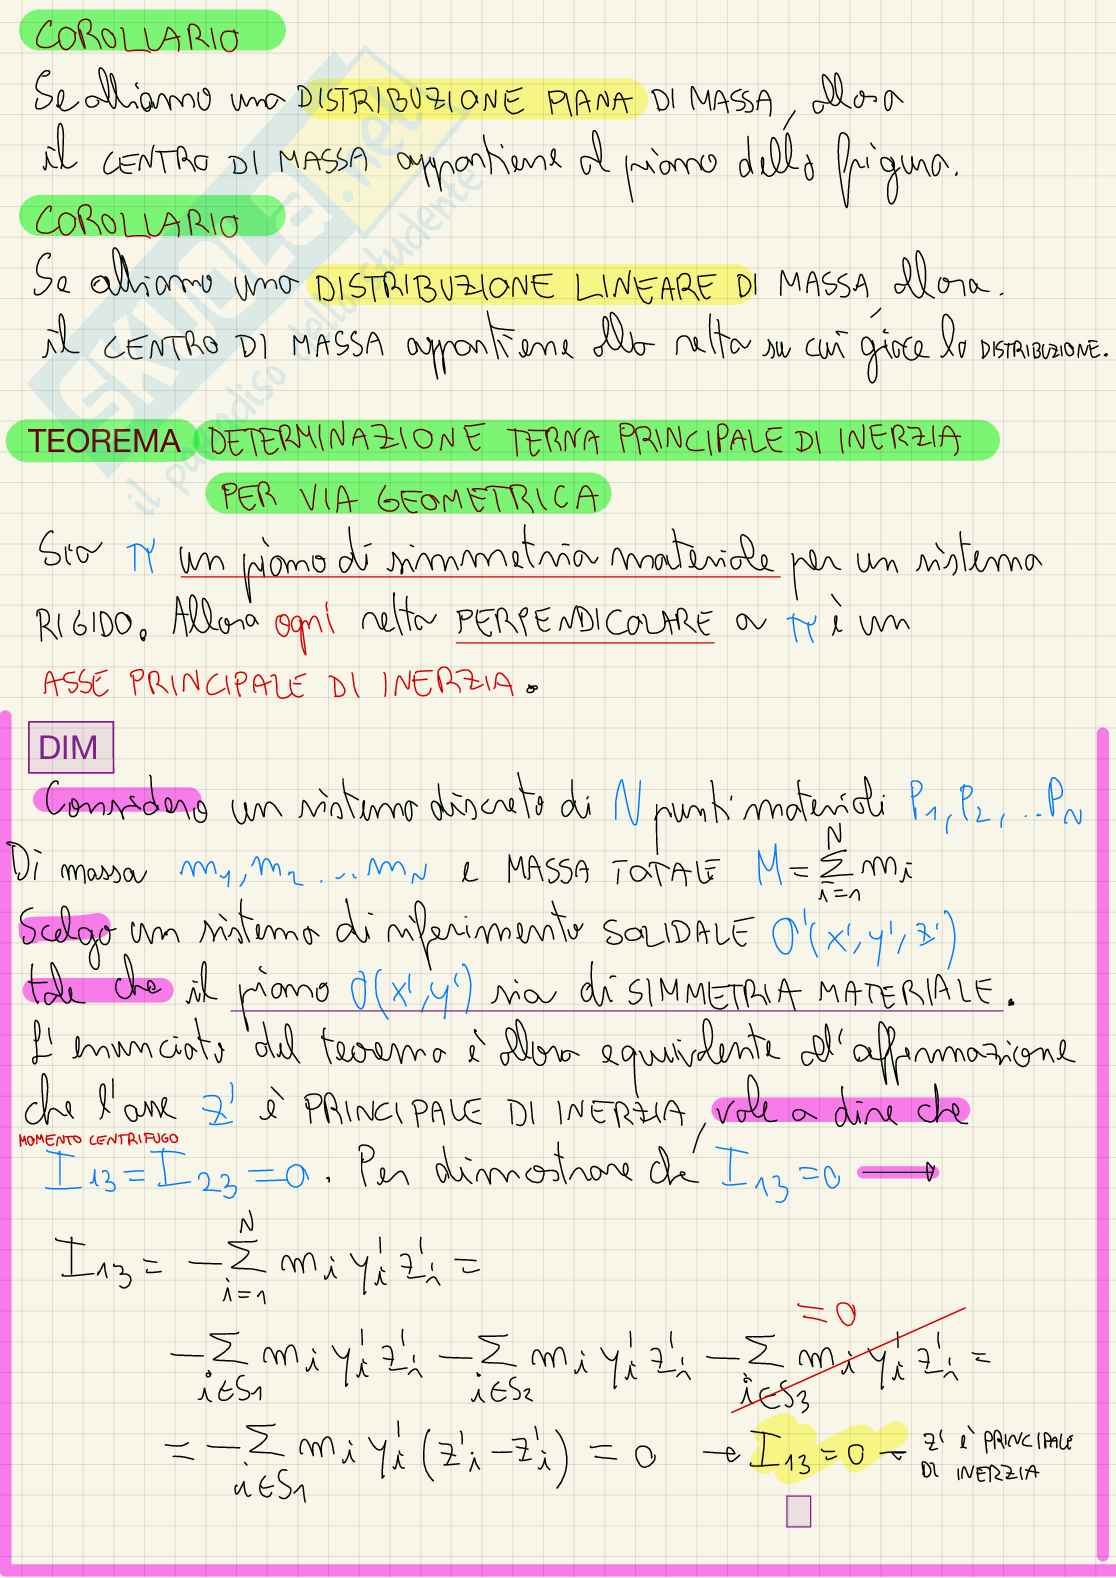 COROLLARIO
Se abbiamo una DISTRIBUZIONE PIANA DI MASSA, allora
il CENTRO DI MASSA appartiene al piano della figura.
COROLLARIO
Se abbiamo una DISTRIBUZIONE LINEARE DI MASSA, allora.
il CENTRO DI MASSA appartiene alla retta su cui giace la DISTRIBUZIONE.
TEOREMA DETERMINAZIONE TERNA PRINCIPALE DI INERZIA
PER VIA GEOMETRICA
Sia π un piano di simmetria materiale per un sistema
RIGIDO. Allora ogni retta PERPENDICOLARE a π è un
ASSE PRINCIPALE DI INERZIA.
DIM
Considero un sistema discreto di N punti materiali P1, P2, ... PN
Di massa m1, m2 ... mN e MASSA TOTALE M = Σ_{i=1}^{N} mi
Scelgo un sistema di riferimento SOLIDALE O'(x', y', z')
tale che il piano O'(x', y') sia di SIMMETRIA MATERIALE.
L'enunciato del teorema è allora equivalente all'affermazione
che l'asse z' è PRINCIPALE DI INERZIA, vale a dire che
MOMENTO CENTRIFUGO
I13 = I23 = 0. Per dimostrare che I13 = 0 →
I13 = - Σ_{i=1}^{N} mi y'i z'i =
= 0
- Σ_{i∈S1} mi y'i z'i - Σ_{i∈S2} mi y'i z'i - Σ_{i∈S3} mi y'i z'i =
= - Σ_{i∈S1} mi y'i (z'i - z'i) = 0 → I13 = 0 → z' è PRINCIPALE
DI INERZIA
SKUOLA.net
il paradiso dello studente